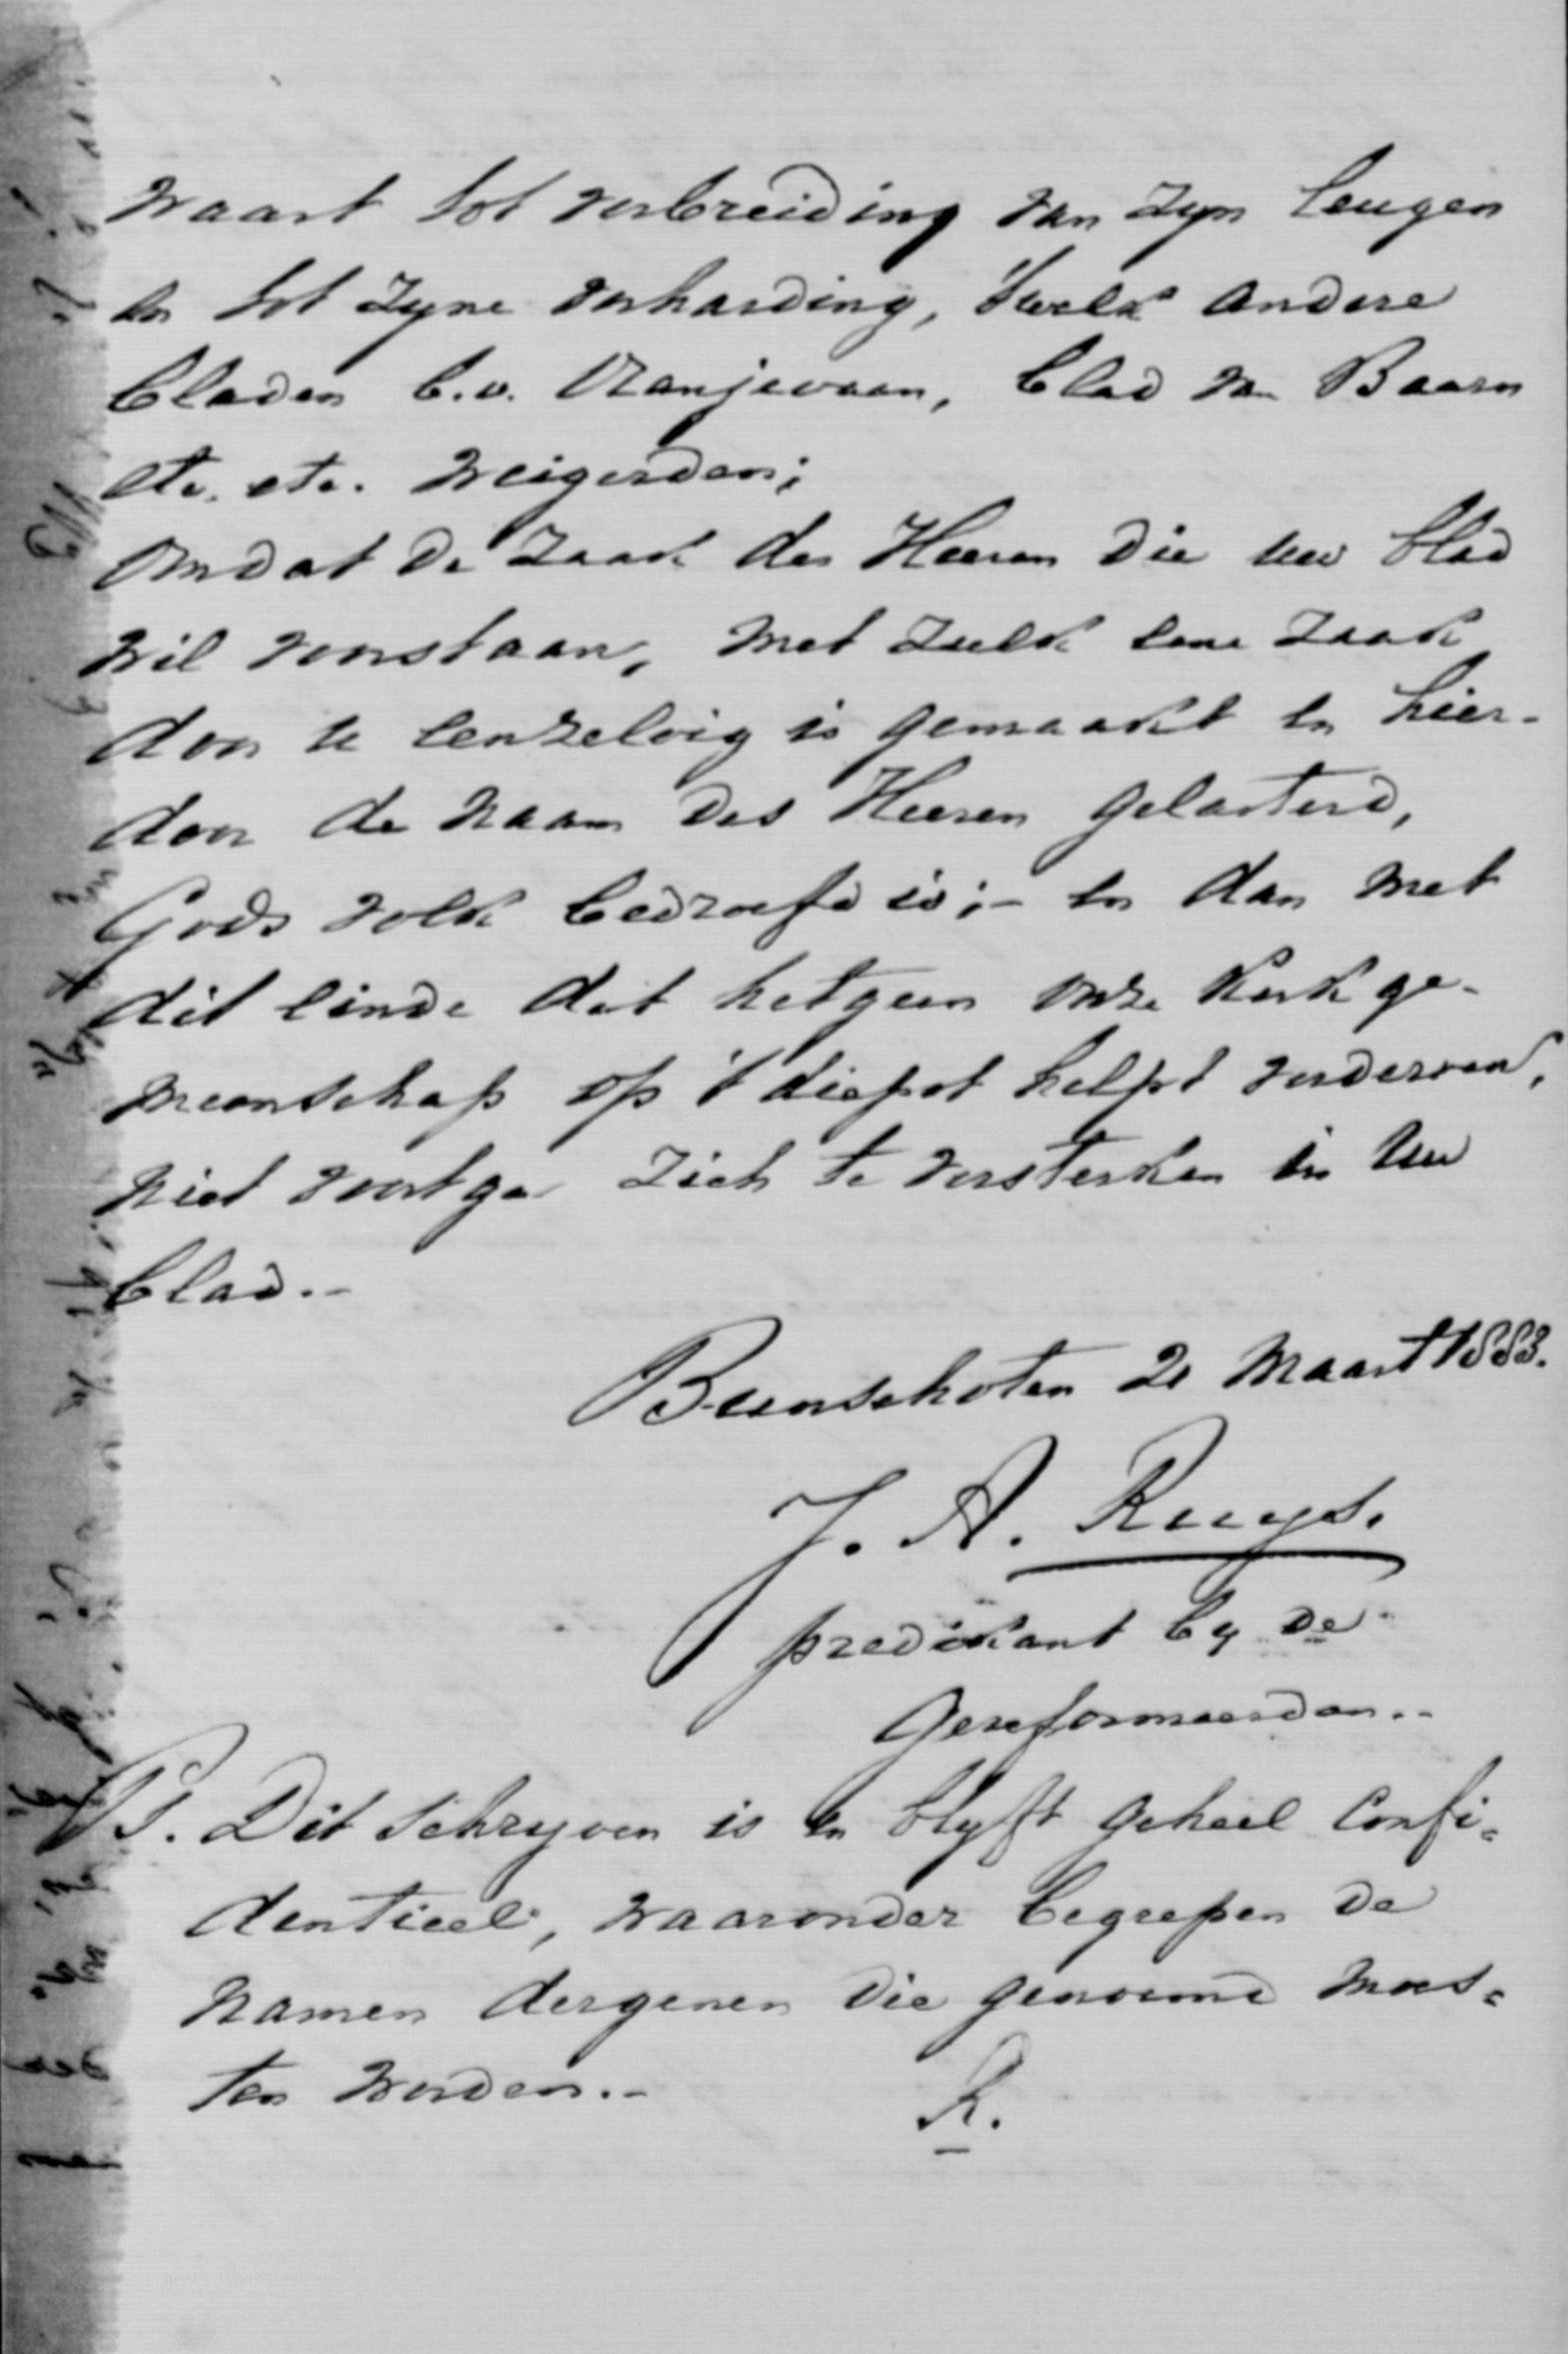 waart tot verbreiding van zyn leugen
en tot zyne verharding, 'twelk andere
bladen b.v. Oranjevaan, blad van Baarn
etc. etc. weigerden;
Omdat de zaak des Heeren die uw blad
wil voorstaan, met zulk eene zaak
door te eenzelvig is gemaakt en hier-
door de naam des Heeren gelasterd,
Gods volk bedroefd is; - en dan met
dit einde dat hetgeen onze Kerkge-
meenschap op 't diepst helpt verderven,
niet voortga zich te versterken in Uw
blad.-
Bunschoten 21 Maart 1883.
J. A. Ruys.
predikant by de
Gereformeerden.-
PS. Dit schryven is en blyft geheel confi=
dentieel, waaronder begrepen de
namen dergenen die genoemd moes=
ten worden.-
R.